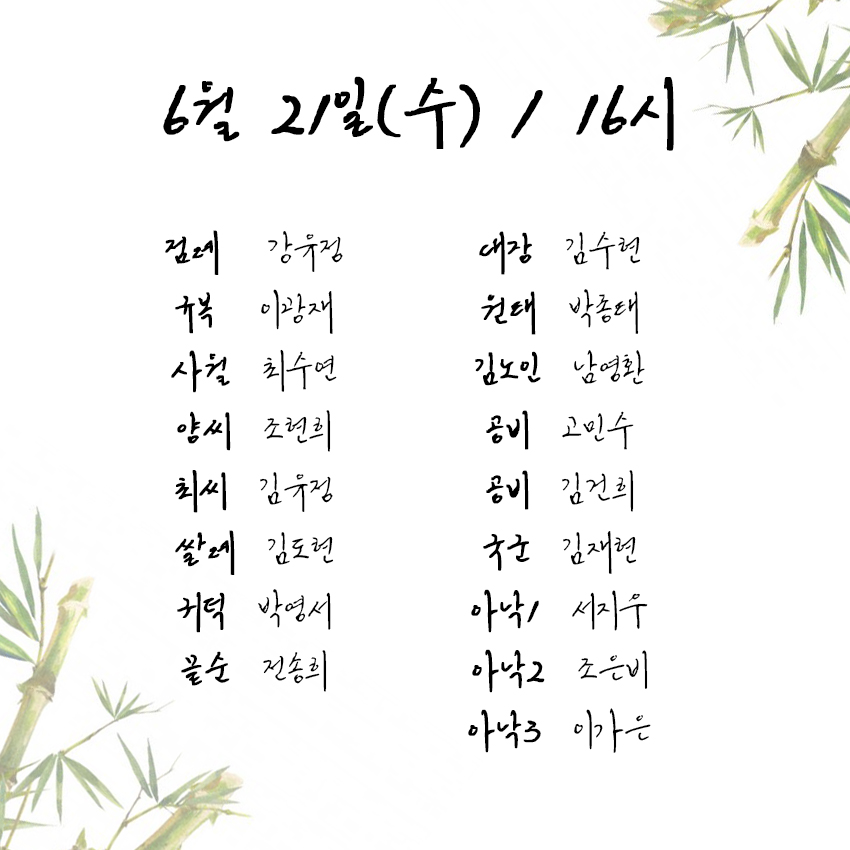 6월 21일(수) / 16시
점례 강유정
규복 이광재
사월 최수연
양씨 조현희
최씨 김유정
쌀례 김도현
귀덕 박영서
끝순 전송희
대장 김수현
원태 박종태
김노인 남영환
공비 고민수
공비 김건희
국군 김재현
아낙1 서지우
아낙2 조은비
아낙3 이가은